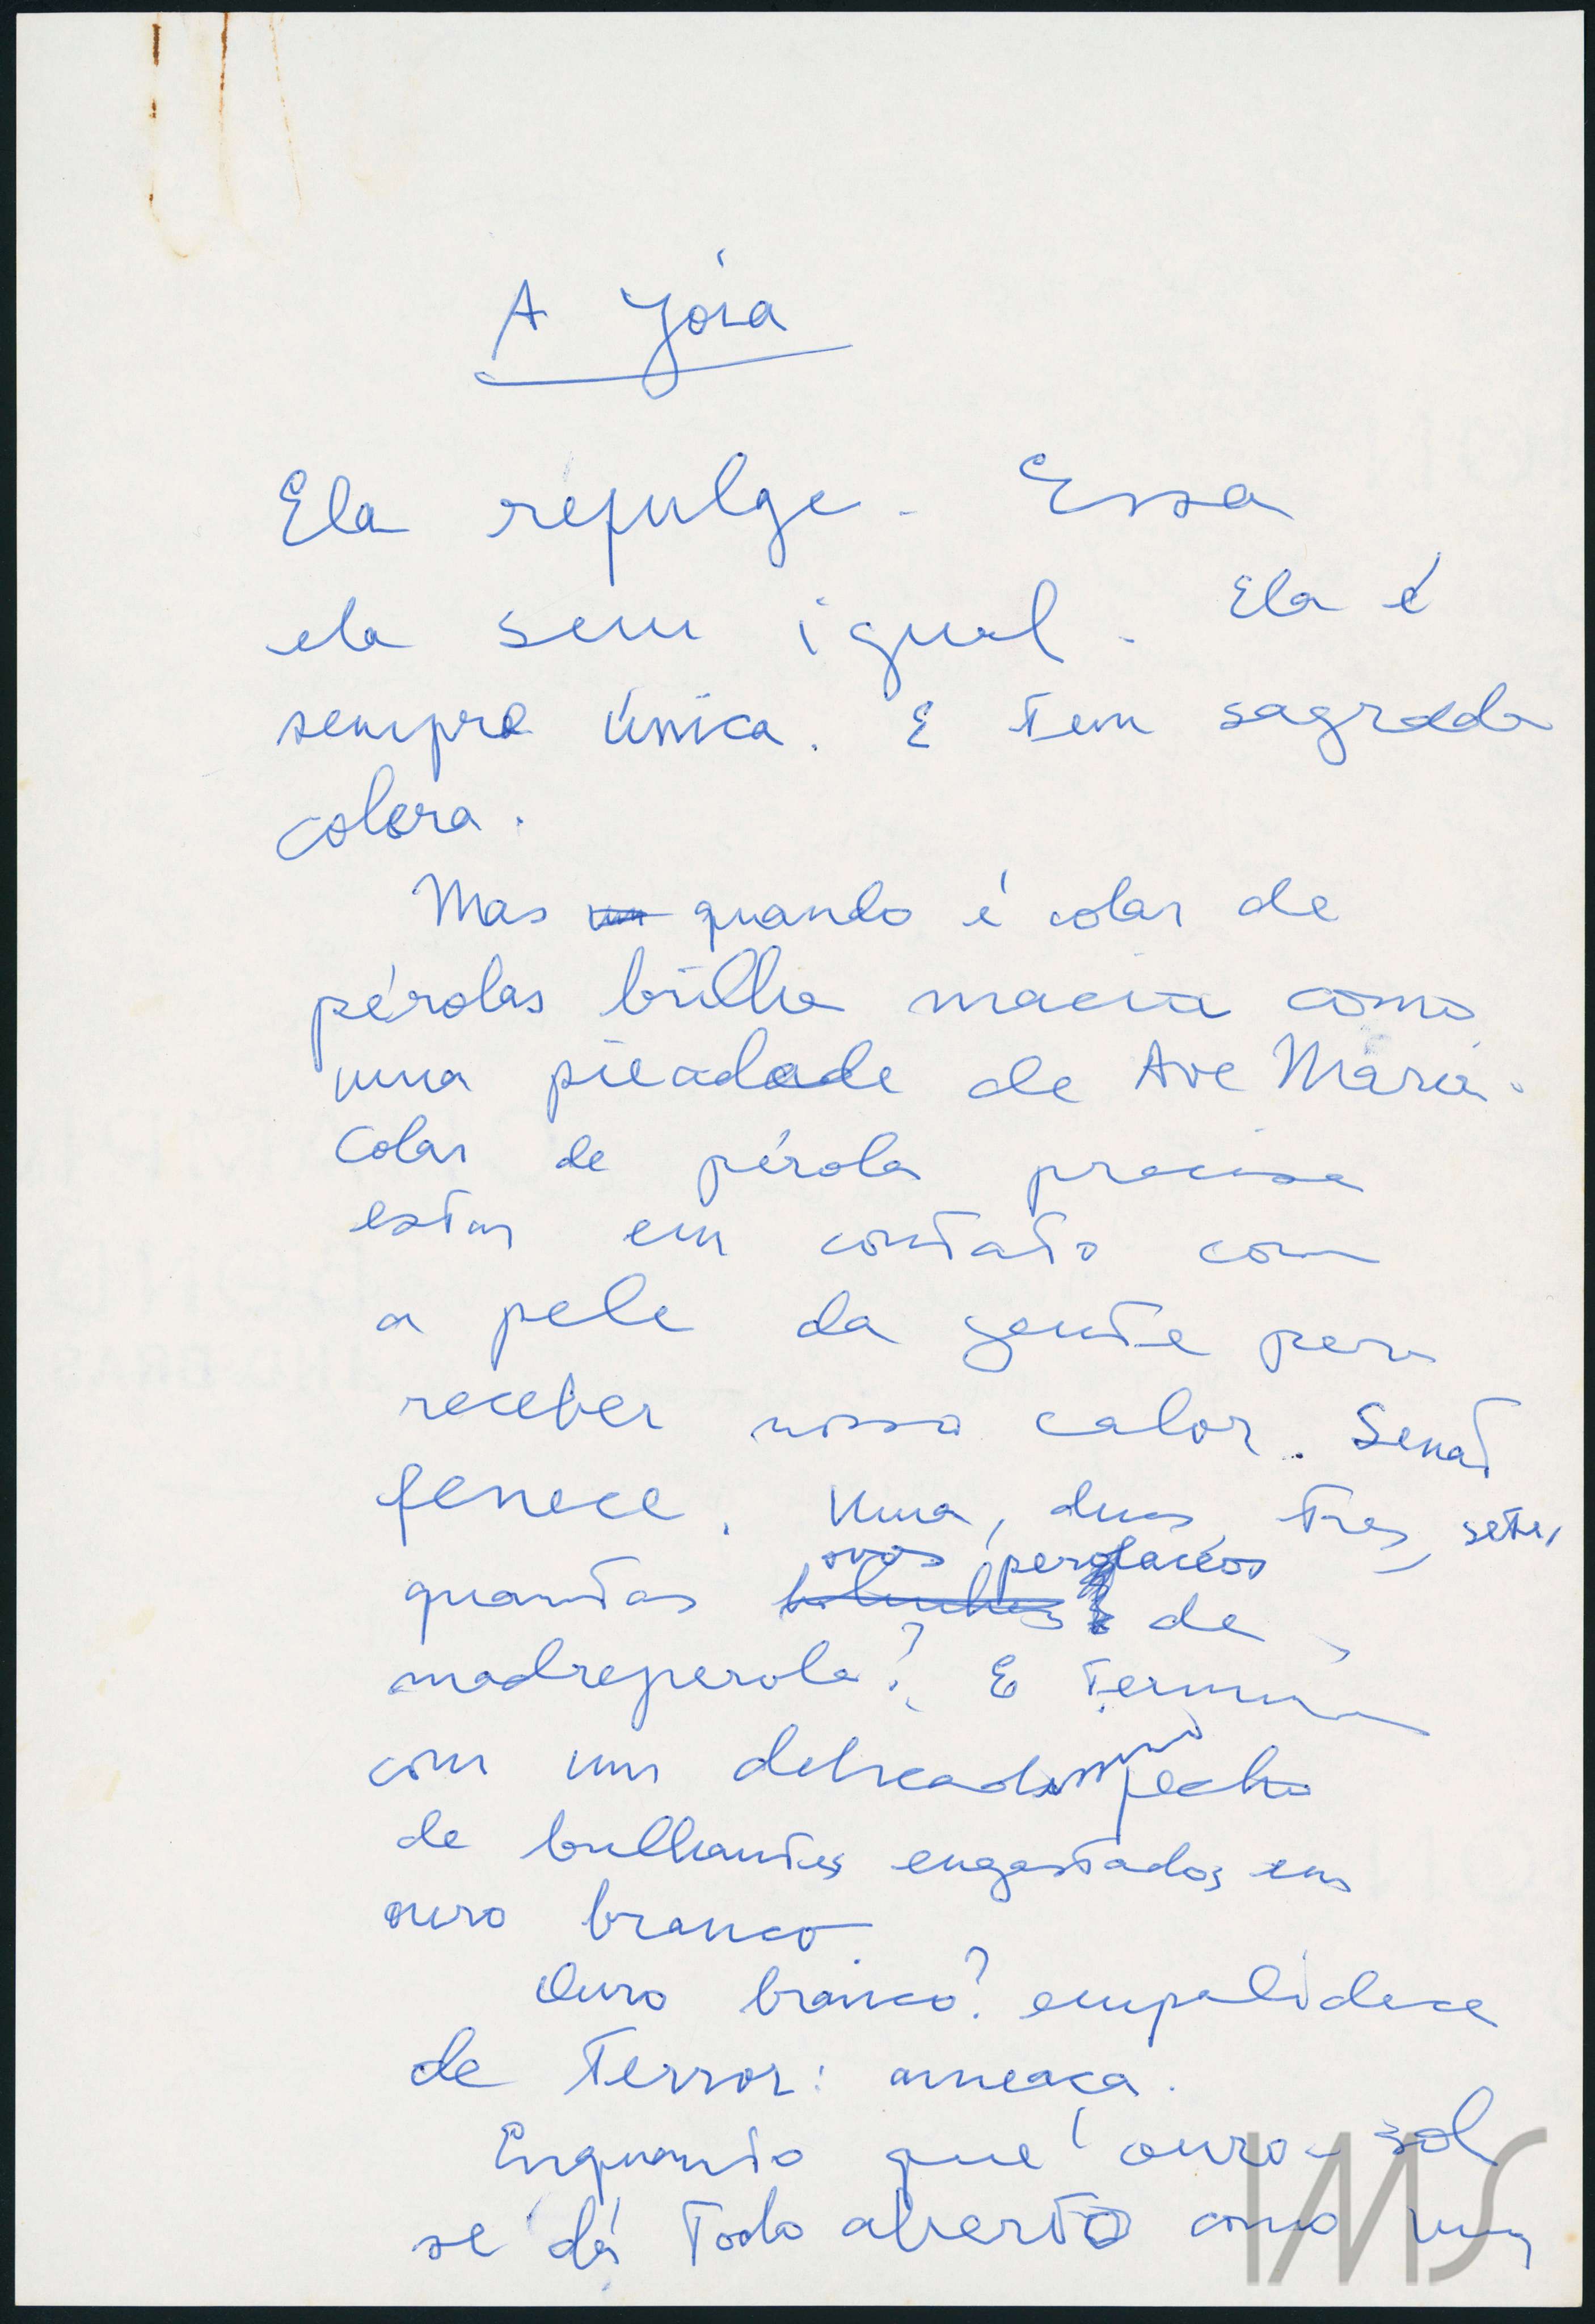 A Jóia
Ela refulge. Essa
ela sem igual. Ela é
sempre única. E tem sagrada
colera.
Mas quando é colar de
pérolas brilha macia como
uma piedade de Ave Maria.
Colar de pérola precisa
estar em contato com
a pele da gente para
receber nosso calor. Senão
fenece. Uma, duas, tres, sete,
ovos perolaceos
quantas de
madreperola? E termina
com um delicado fecho
de brilhantes engastados em
ouro branco.
Ouro branco? empalidece
de terror: ameaça.
Enquanto que ouro-sol
se dá todo aberto como um
IMS